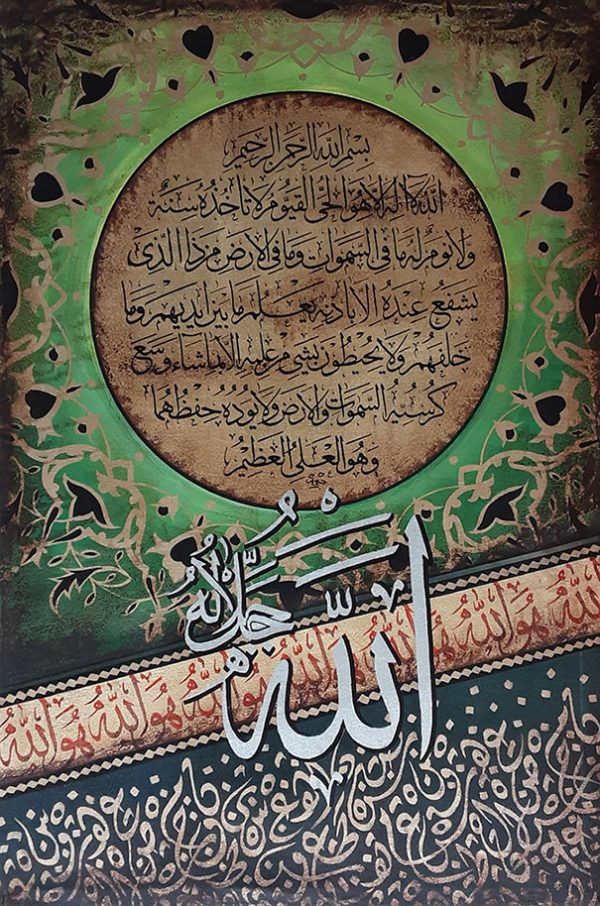 بسم الله الرحمن الرحيم
الله لا إله إلا هو الحي القيوم لا تأخذه سنة
ولا نوم له ما في السموات وما في الأرض من ذا الذي
يشفع عنده إلا بإذنه يعلم ما بين أيديهم وما
خلفهم ولا يحيطون بشيء من علمه إلا بما شاء وسع
كرسيه السموات والأرض ولا يؤده حفظهما
وهو العلي العظيم
الله جل جلاله
هو الله هو الله هو الله هو الله هو الله هو الله